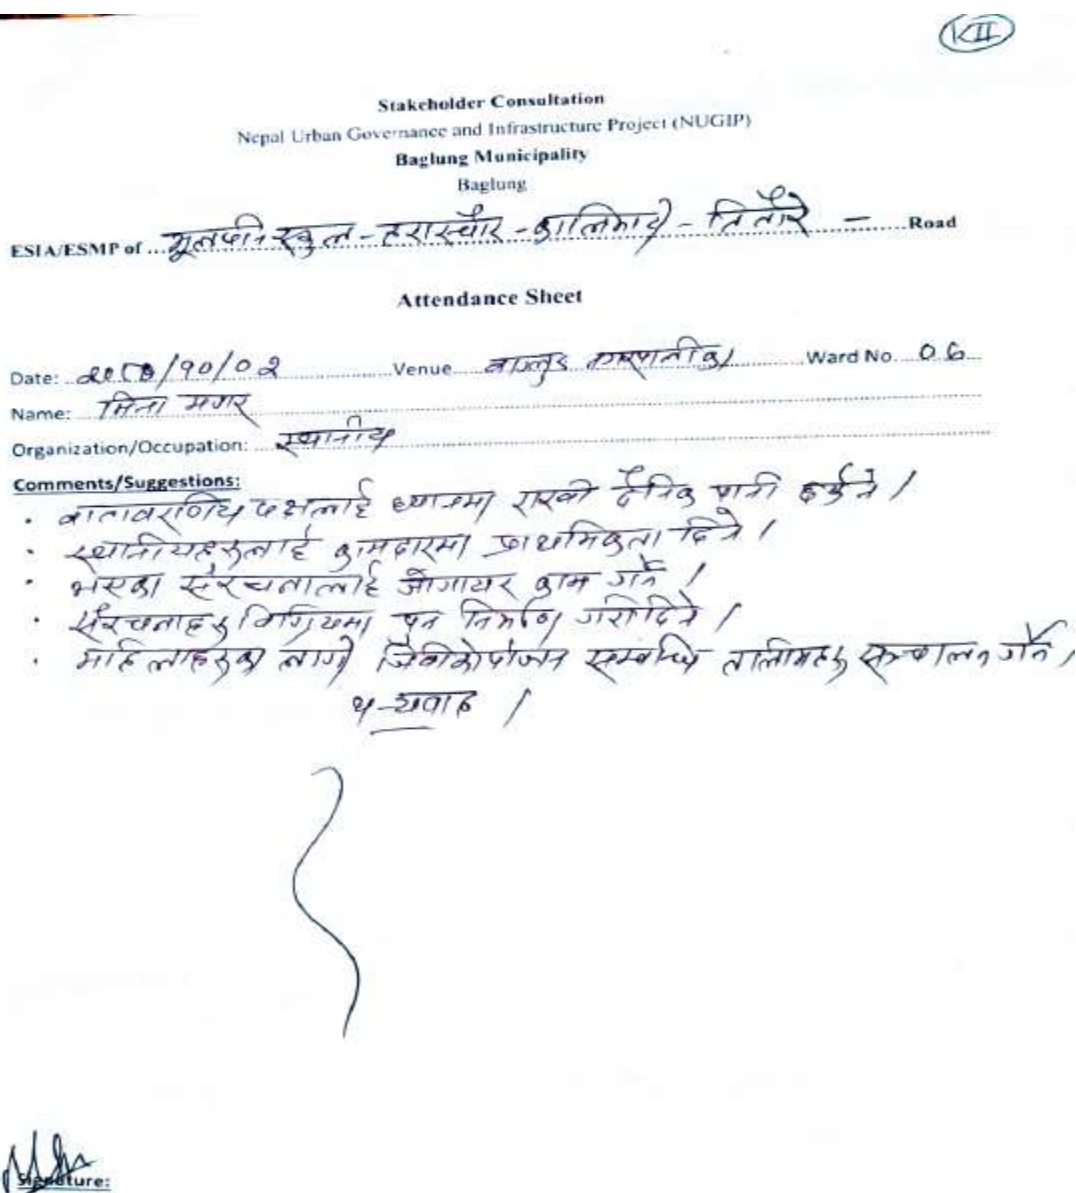 KII
Stakeholder Consultation
Nepal Urban Governance and Infrastructure Project (NUGIP)
Baglung Municipality
Baglung
ESIA/ESMP of ... स्कुल - - - ... Road
Attendance Sheet
Date: /10/02 Venue बाग्लुङ नगरपालिका Ward No. 06
Name: मिना मगर
Organization/Occupation: स्थानीय
Comments/Suggestions:
• वातावरणिय पक्षलाई ध्यानमा राखी दैनिक पानी छर्कने ।
• स्थानीयहरुलाई कामदारमा प्राथमिकता दिने ।
• भएका संरचनालाई जोगाएर काम गर्ने ।
• संरचनाहरु विग्रिएमा पुन निर्माण गरीदिने ।
• महिलाहरुका लागी जिवीकोपार्जन सम्बन्धि तालीमहरु सञ्चालन गर्ने ।
धन्यवाद ।
Signature: